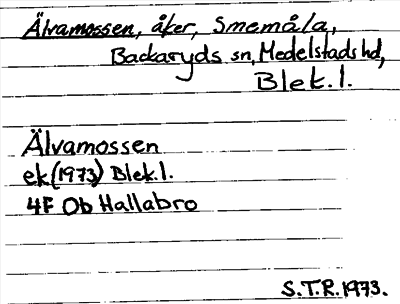 Älvamossen, åker, Smemåla,
Backaryds sn, Medelstads hd,
Blek. l.
Älvamossen
ek. (1973) Blek. l.
4F Ob Hallabro
S.T.R. 1973.